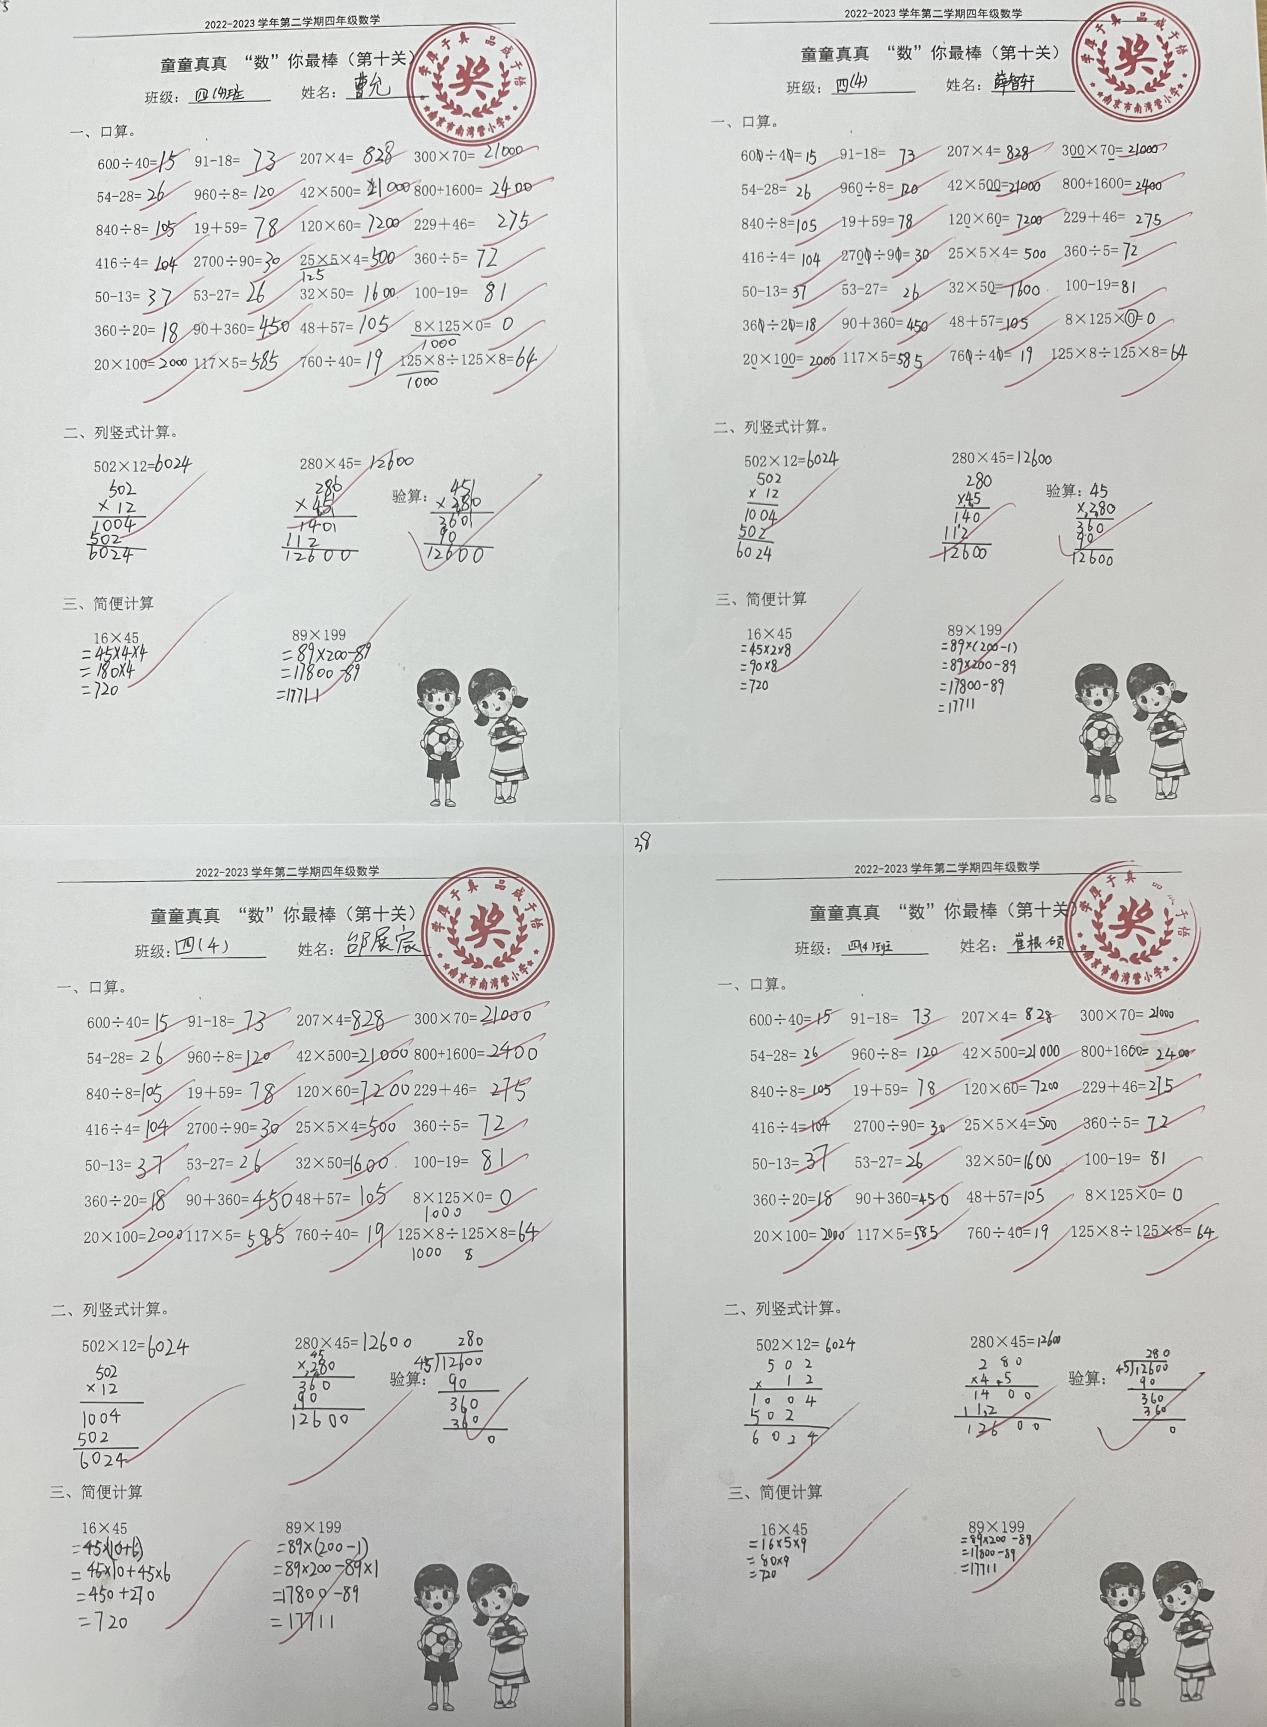 2022-2023 学年第二学期四年级数学
童童真真 “数”你最棒（第十关）
班级：四(4)班 姓名：曹允
学厚于真 品成于悟
奖
南京市南湾营小学
一、口算。
600÷40=15 91-18=73 207×4=828 300×70=21000
54-28=26 960÷8=120 42×500=21000 800+1600=2400
840÷8=105 19+59=78 120×60=7200 229+46=275
416÷4=104 2700÷90=30 25×5×4=500 360÷5=72
125
50-13=37 53-27=26 32×50=1600 100-19=81
360÷20=18 90+360=450 48+57=105 8×125×0=0
1000
20×100=2000 117×5=585 760÷40=19 125×8÷125×8=64
1000
二、列竖式计算。
502×12=6024 280×45=12600
502 280 验算：45
×12 ×45 ×280
1004 140 360
502 112 90
6024 12600 12600
三、简便计算
16×45 89×199
=45×4×4 =89×200-89
=180×4 =17800-89
=720 =17711
2022-2023 学年第二学期四年级数学
童童真真 “数”你最棒（第十关）
班级：四(4) 姓名：薛智轩
学厚于真 品成于悟
奖
南京市南湾营小学
一、口算。
600÷40=15 91-18=73 207×4=828 300×70=21000
54-28=26 960÷8=120 42×500=21000 800+1600=2400
840÷8=105 19+59=78 120×60=7200 229+46=275
416÷4=104 2700÷90=30 25×5×4=500 360÷5=72
50-13=37 53-27=26 32×50=1600 100-19=81
360÷20=18 90+360=450 48+57=105 8×125×0=0
20×100=2000 117×5=585 760÷40=19 125×8÷125×8=64
二、列竖式计算。
502×12=6024 280×45=12600
502 280 验算：45
×12 ×45 ×280
1004 140 360
502 112 90
6024 12600 12600
三、简便计算
16×45 89×199
=45×2×8 =89×(200-1)
=90×8 =89×200-89
=720 =17800-89
=17711
2022-2023 学年第二学期四年级数学
童童真真 “数”你最棒（第十关）
班级：四(4) 姓名：邰展宸
学厚于真 品成于悟
奖
南京市南湾营小学
一、口算。
600÷40=15 91-18=73 207×4=828 300×70=21000
54-28=26 960÷8=120 42×500=21000 800+1600=2400
840÷8=105 19+59=78 120×60=7200 229+46=275
416÷4=104 2700÷90=30 25×5×4=500 360÷5=72
50-13=37 53-27=26 32×50=1600 100-19=81
360÷20=18 90+360=450 48+57=105 8×125×0=0
1000
20×100=2000 117×5=585 760÷40=19 125×8÷125×8=64
1000 8
二、列竖式计算。
502×12=6024 280×45=12600
502 45 280
×12 ×280 验算：45)12600
1004 360 90
502 90 360
6024 12600 360
0
三、简便计算
16×45 89×199
=45×(10+6) =89×(200-1)
=45×10+45×6 =89×200-89×1
=450+270 =17800-89
=720 =17711
38
2022-2023 学年第二学期四年级数学
童童真真 “数”你最棒（第十关）
班级：四(4)班 姓名：崔根硕
学厚于真 品成于悟
奖
南京市南湾营小学
一、口算。
600÷40=15 91-18=73 207×4=828 300×70=21000
54-28=26 960÷8=120 42×500=21000 800+1600=2400
840÷8=105 19+59=78 120×60=7200 229+46=275
416÷4=104 2700÷90=30 25×5×4=500 360÷5=72
50-13=37 53-27=26 32×50=1600 100-19=81
360÷20=18 90+360=450 48+57=105 8×125×0=0
20×100=2000 117×5=585 760÷40=19 125×8÷125×8=64
二、列竖式计算。
502×12=6024 280×45=12600
502 280 280
×12 ×45 验算：45)12600
1004 1400 90
502 112 360
6024 12600 360
0
三、简便计算
16×45 89×199
=16×5×9 =89×200-89
=80×9 =17800-89
=720 =17711